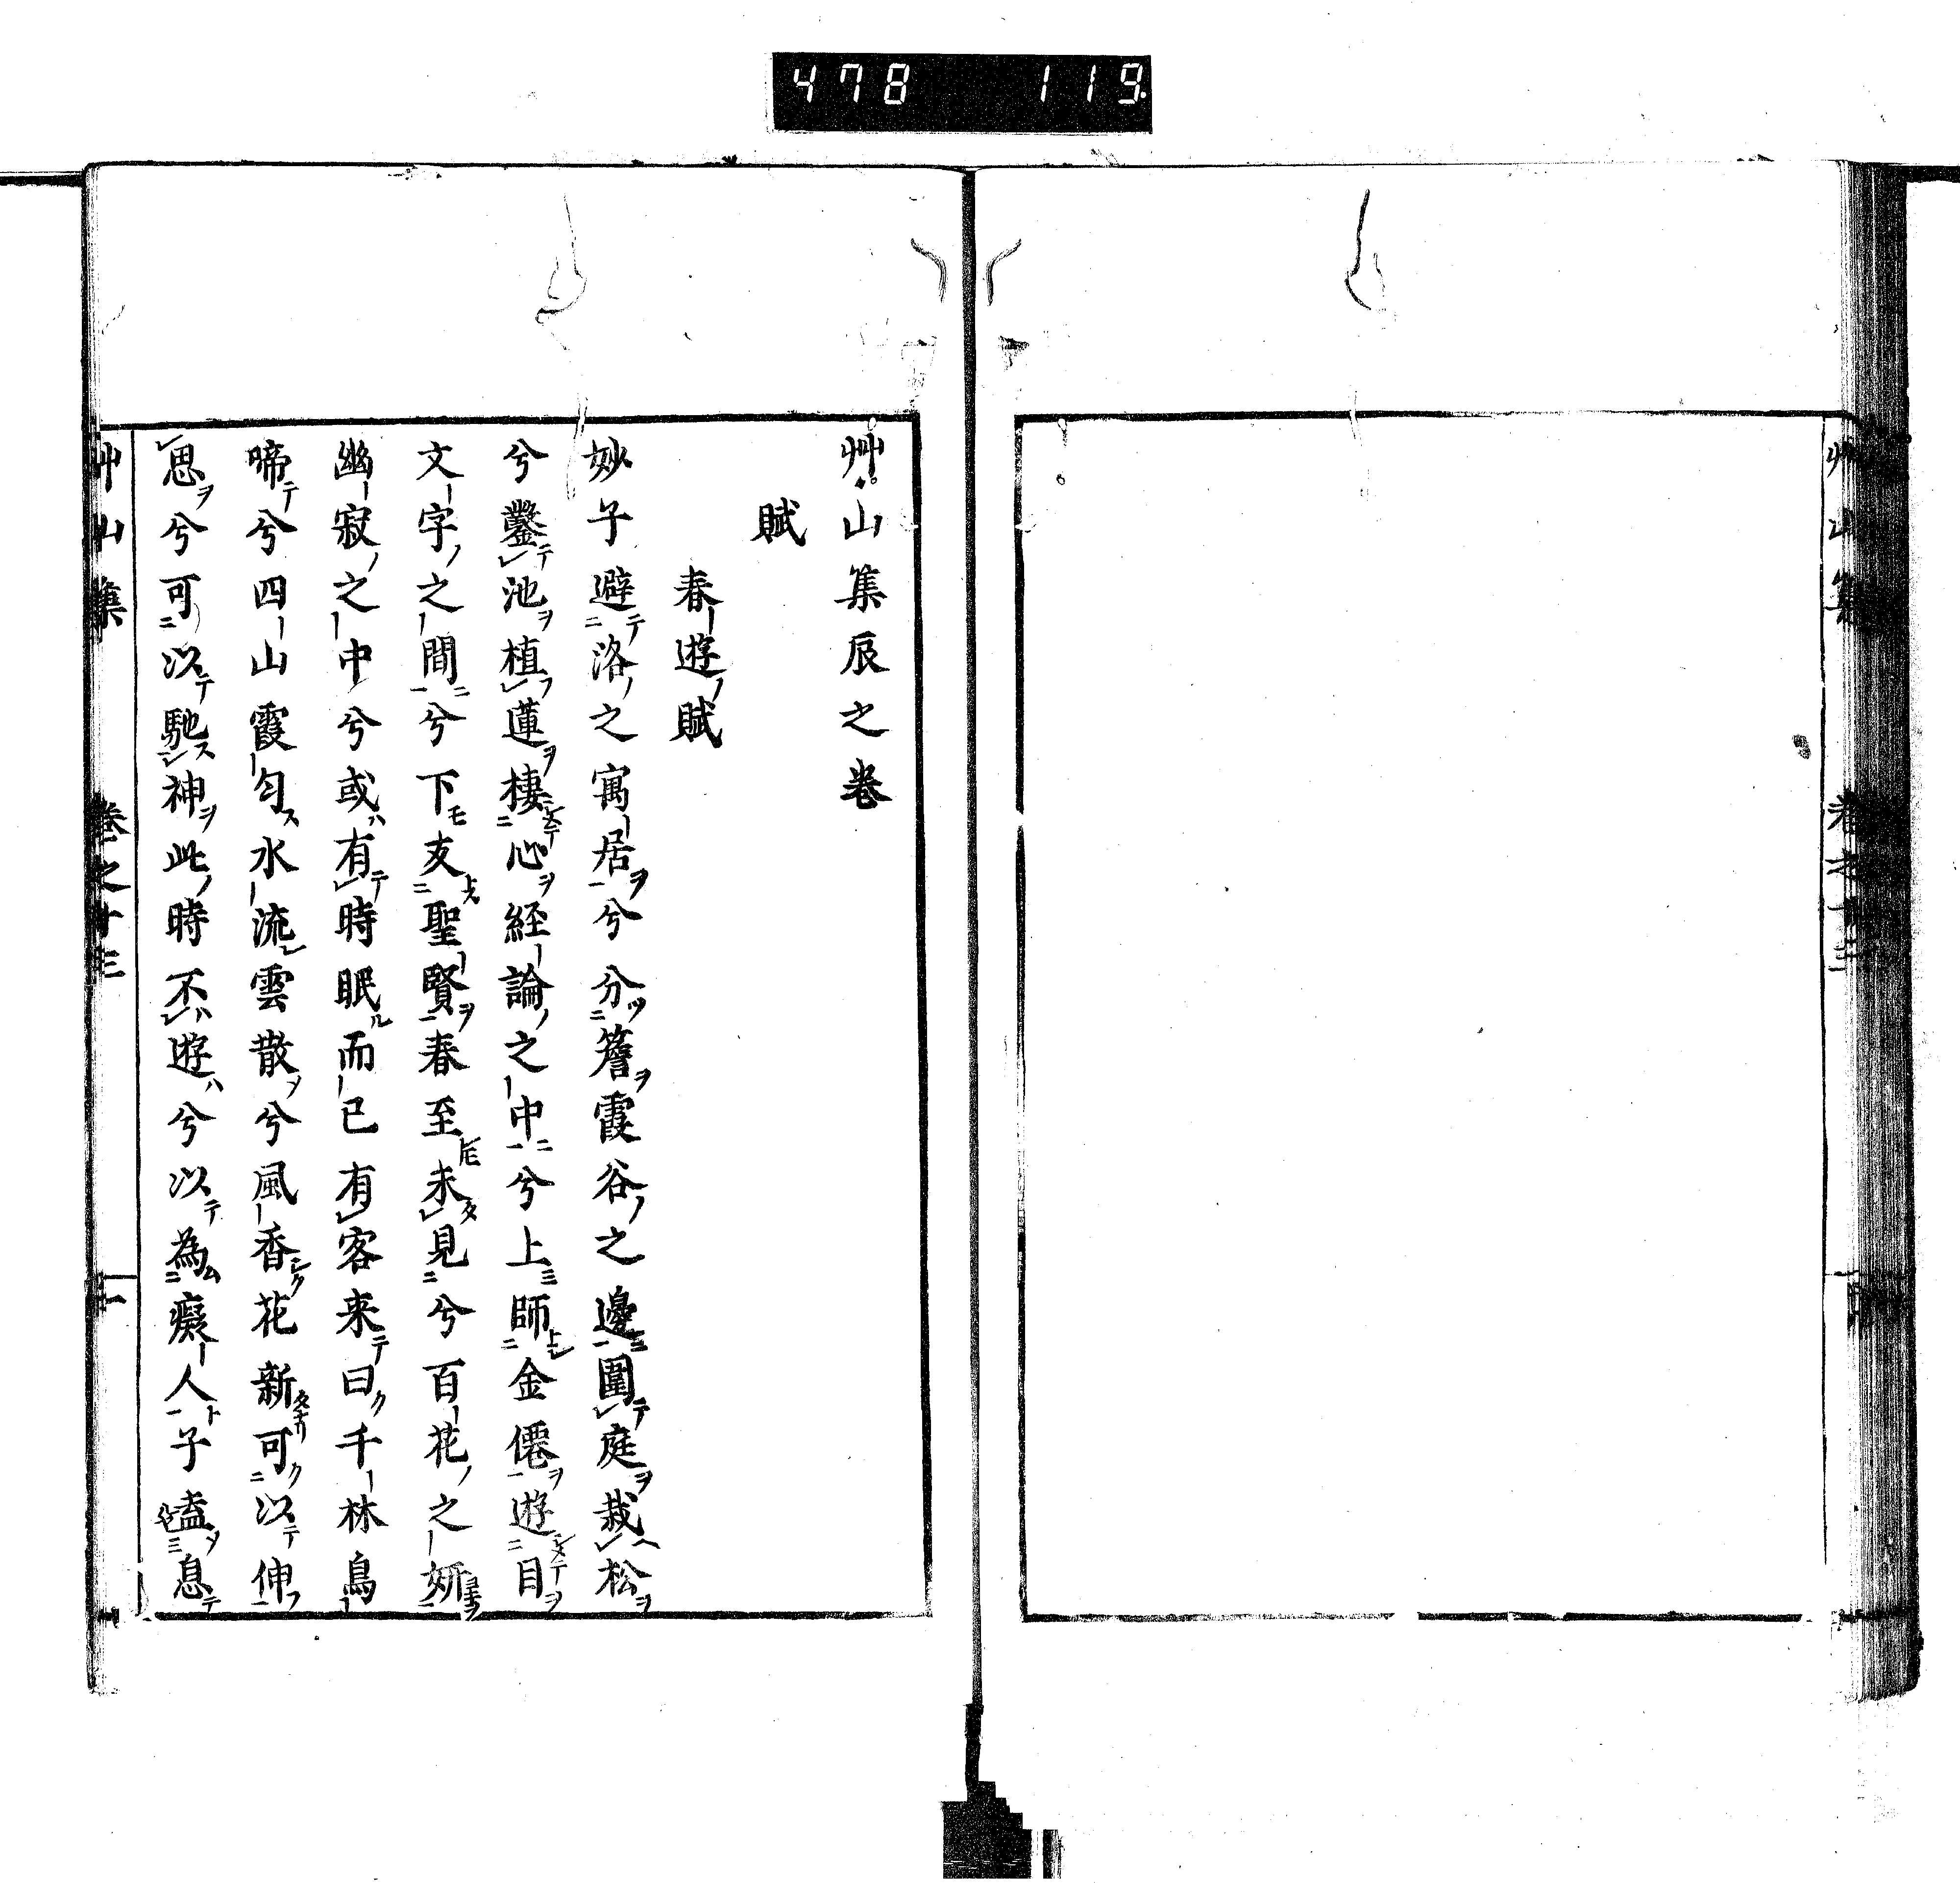 478 119
艸山集辰之巻
賦
春遊賦
妙子避洛之寓居兮分簷霞谷之邊圍庭栽松
兮鑿池植蓮棲心経論之中兮上師金僊遊目
文字之間兮下友聖賢春至未見兮百花之妍
幽寂之中兮或有時眠而已有客来曰千林鳥
啼兮四山霞匀水流雲散兮風香花新可以伸
思兮可以馳神此時不遊兮以為癡人子盍息
艸山集 巻之十三 一